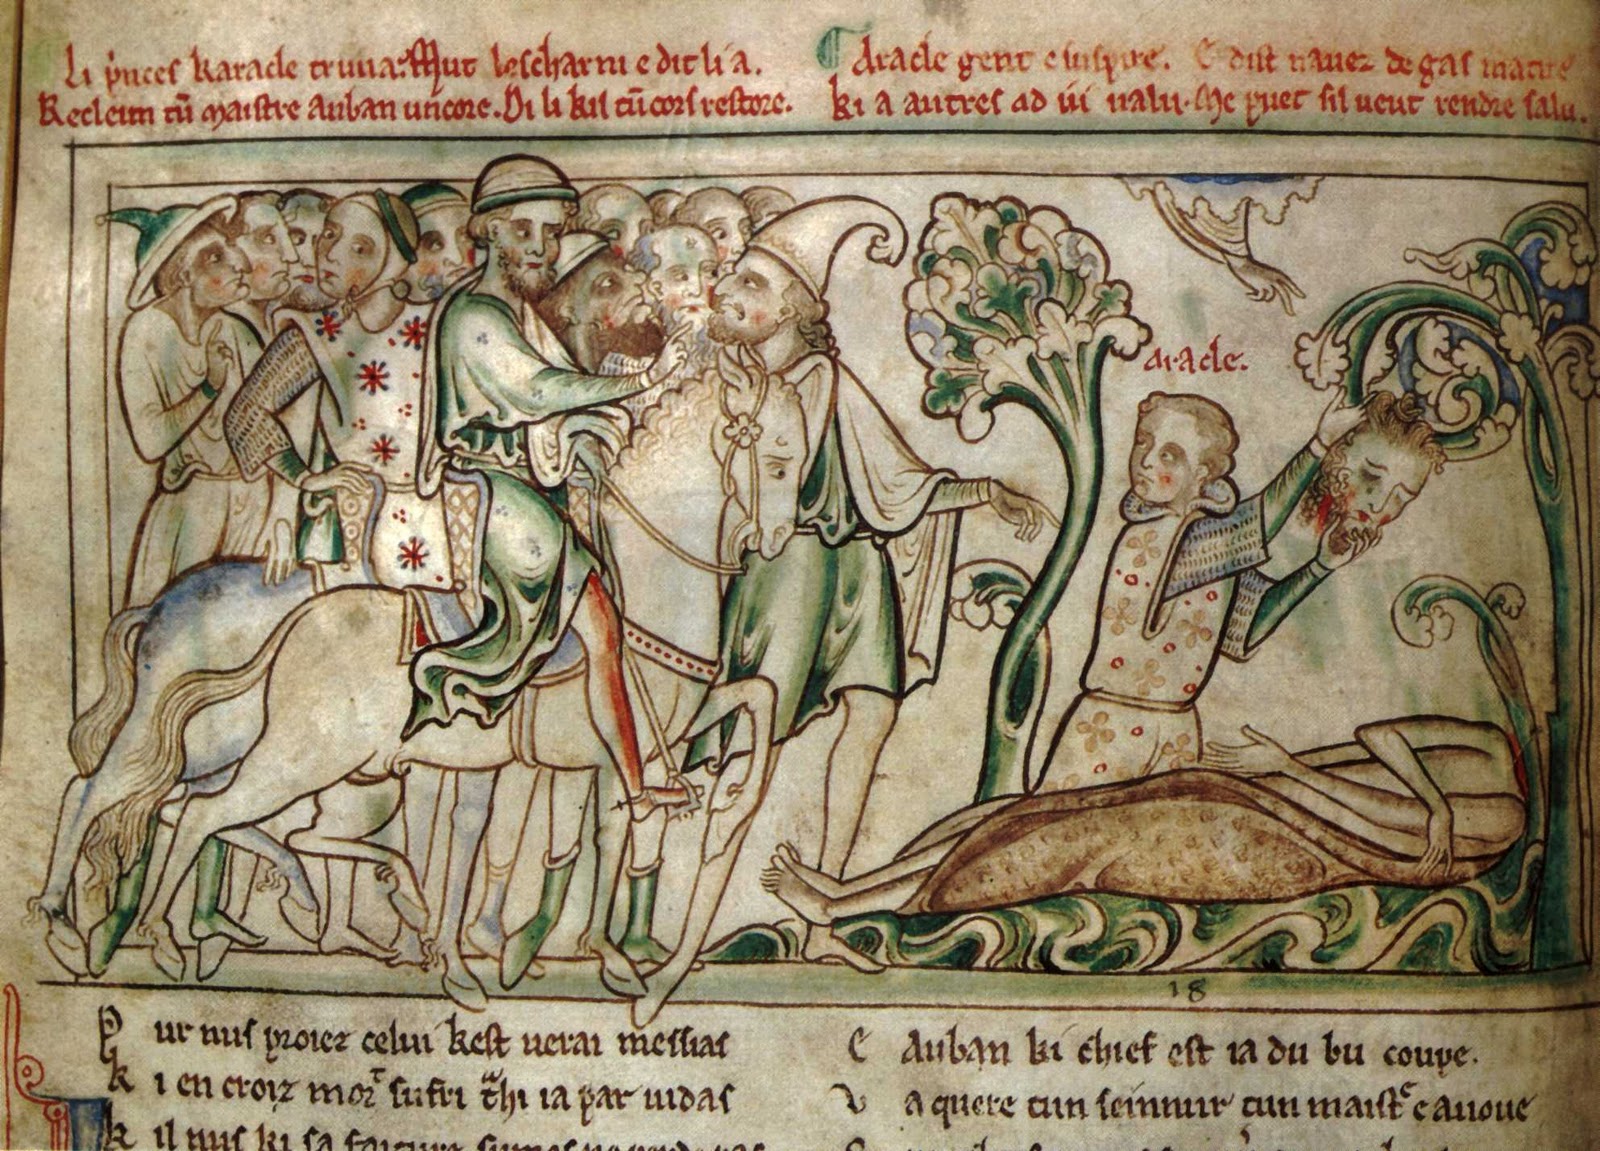 Li p'nces karacle truua. Mut lescharni e dit li a.
Recleim tū maistre Auban uncore. Di li kil tū cors restore.
Aracle gent e suspire. E dist nauez de gas matire
ki a autres ad ui ualu. Me puet sil ueut rendre salu.
aracle.
18
Pur nus proiez celui kest uerai messias
ki en croiz mort sufri thi ia par iudas
kil nus ki sa faiture sumes
E Auban ki chief est ia du bu coupe.
Va quere tun seinnur tun maistre e auoue